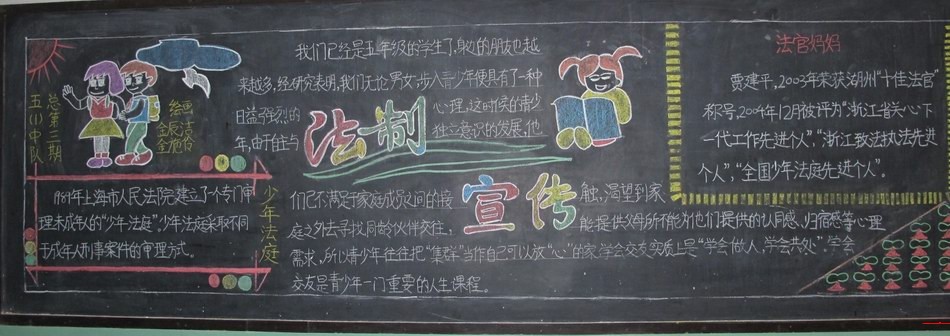 五(1)中队
总第三期
绘画
法制
宣传
我们已经是五年级的学生了,身边的朋友也越
来越多,经研究表明,我们无论男女,步入青少年便具有了一种
日益强烈的
心理,这时候的青少
年,由于自与
独立意识的发展,他
们已不满足于家庭成员之间的接
触,渴望到家
庭之外去寻找同龄伙伴交往,
能提供父母所不能为他们提供的认同感、归宿感等心理
需求,所以青少年往往把“集群”当作自己可以放“心”的家,学会交友实质上是“学会做人,学会共处”,学会
交友是青少年一门重要的人生课程。
少年法庭
1984年上海市人民法院建立了个专门审
理未成年人的“少年法庭”,少年法庭采取不同
于成年人刑事案件的审理方式。
法官妈妈
贾建平,2003年荣获湖州“十佳法官”
称号,2004年12月被评为“浙江省关心下
一代工作先进个人”,“浙江政法执法先进
个人”,“全国少年法庭先进个人”。